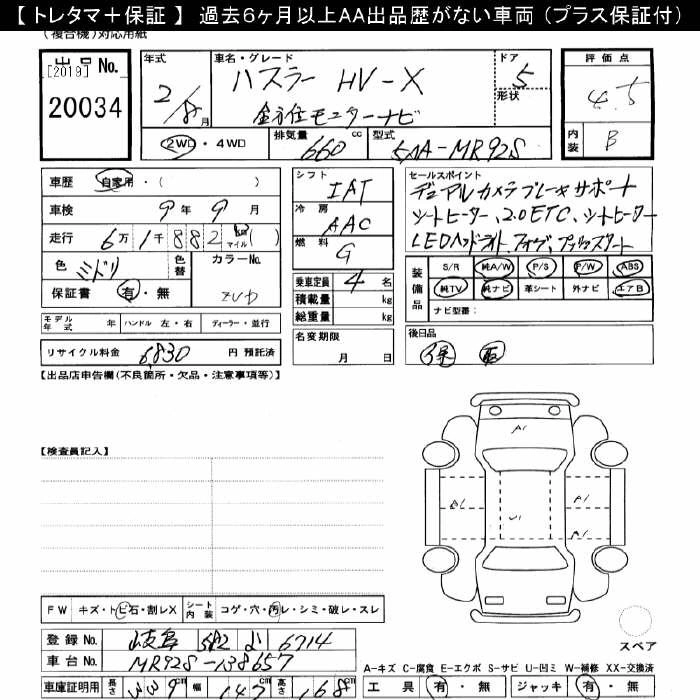 【 トレタマ＋保証 】 過去6ヶ月以上AA出品歴がない車両（プラス保証付）
(複合機)対応用紙
出品 No.
[2019]
20034
年式
2/8月
車名・グレード
ハスラー HV-X
全方位モニターナビ
ドア
5
形状
評価点
4.5
内装
B
2WD・4WD
排気量
660 cc
型式
5AA-MR92S
車歴 自家用・( )
車検 9年9月
走行 6万1千882 マイル( )
色 ミドリ
色替
カラーNo.
ZVD
保証書 有・無
シフト
IAT
冷房
AAC
燃料
G
乗車定員 4 名
積載量 kg
総重量 kg
セールスポイント
デュアルカメラブレーキサポート
シートヒーター、2.0ETC、シートヒーター
LEDヘッドライト
装備品
S/R 純A/W P/S P/W ABS
純TV 純ナビ 革シート 外ナビ エアB
ナビ型番:
モデル年式 年 ハンドル 左・右 ディーラー・並行
名変期限
月 日
後日品
保
リサイクル料金 6,830 円 預託済
【出品店申告欄(不良箇所・欠品・注意事項等)】
【検査員記入】
A1
A1
A1
U1
FW キズ・トビ石・割レX
シート内装 コゲ・穴・汚レ・シミ・破レ・スレ
登録 No. 岐阜 582 6714
車台 No. MR92S-138657
車庫証明用 長さ 339 cm 幅 147 cm 高さ 168 cm
スペア
A-キズ C-腐食 E-エクボ S-サビ U-凹ミ W-補修 XX-交換済
工具 有・無 ジャッキ 有・無